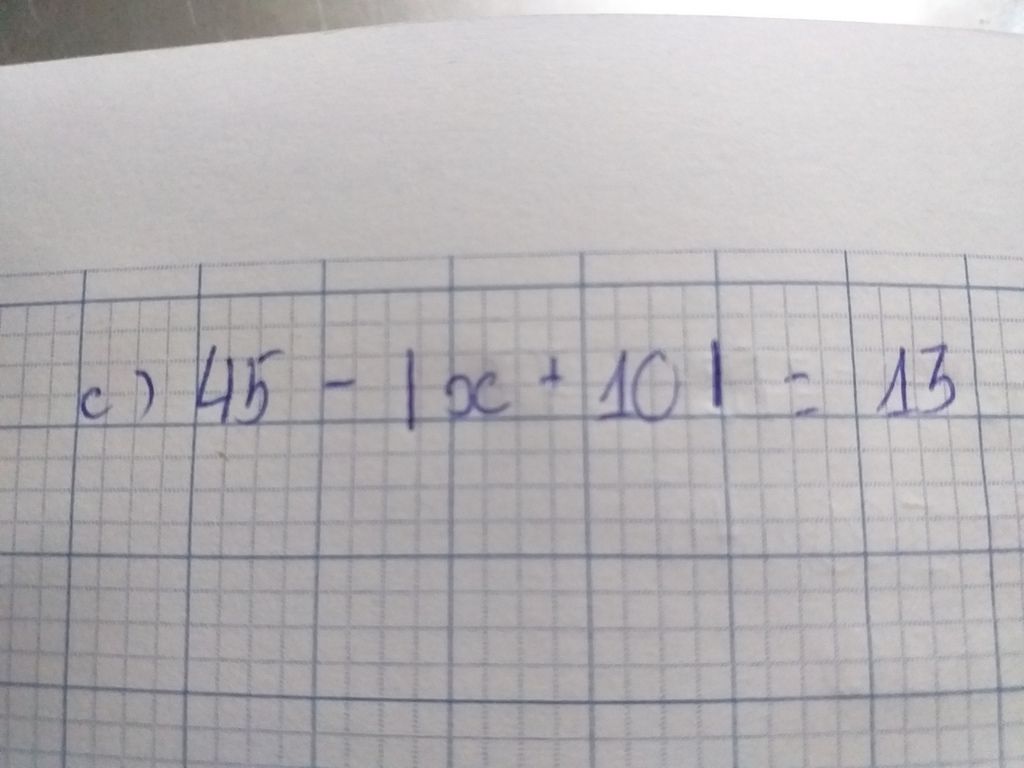 c) 45 - | x + 10 | = 13